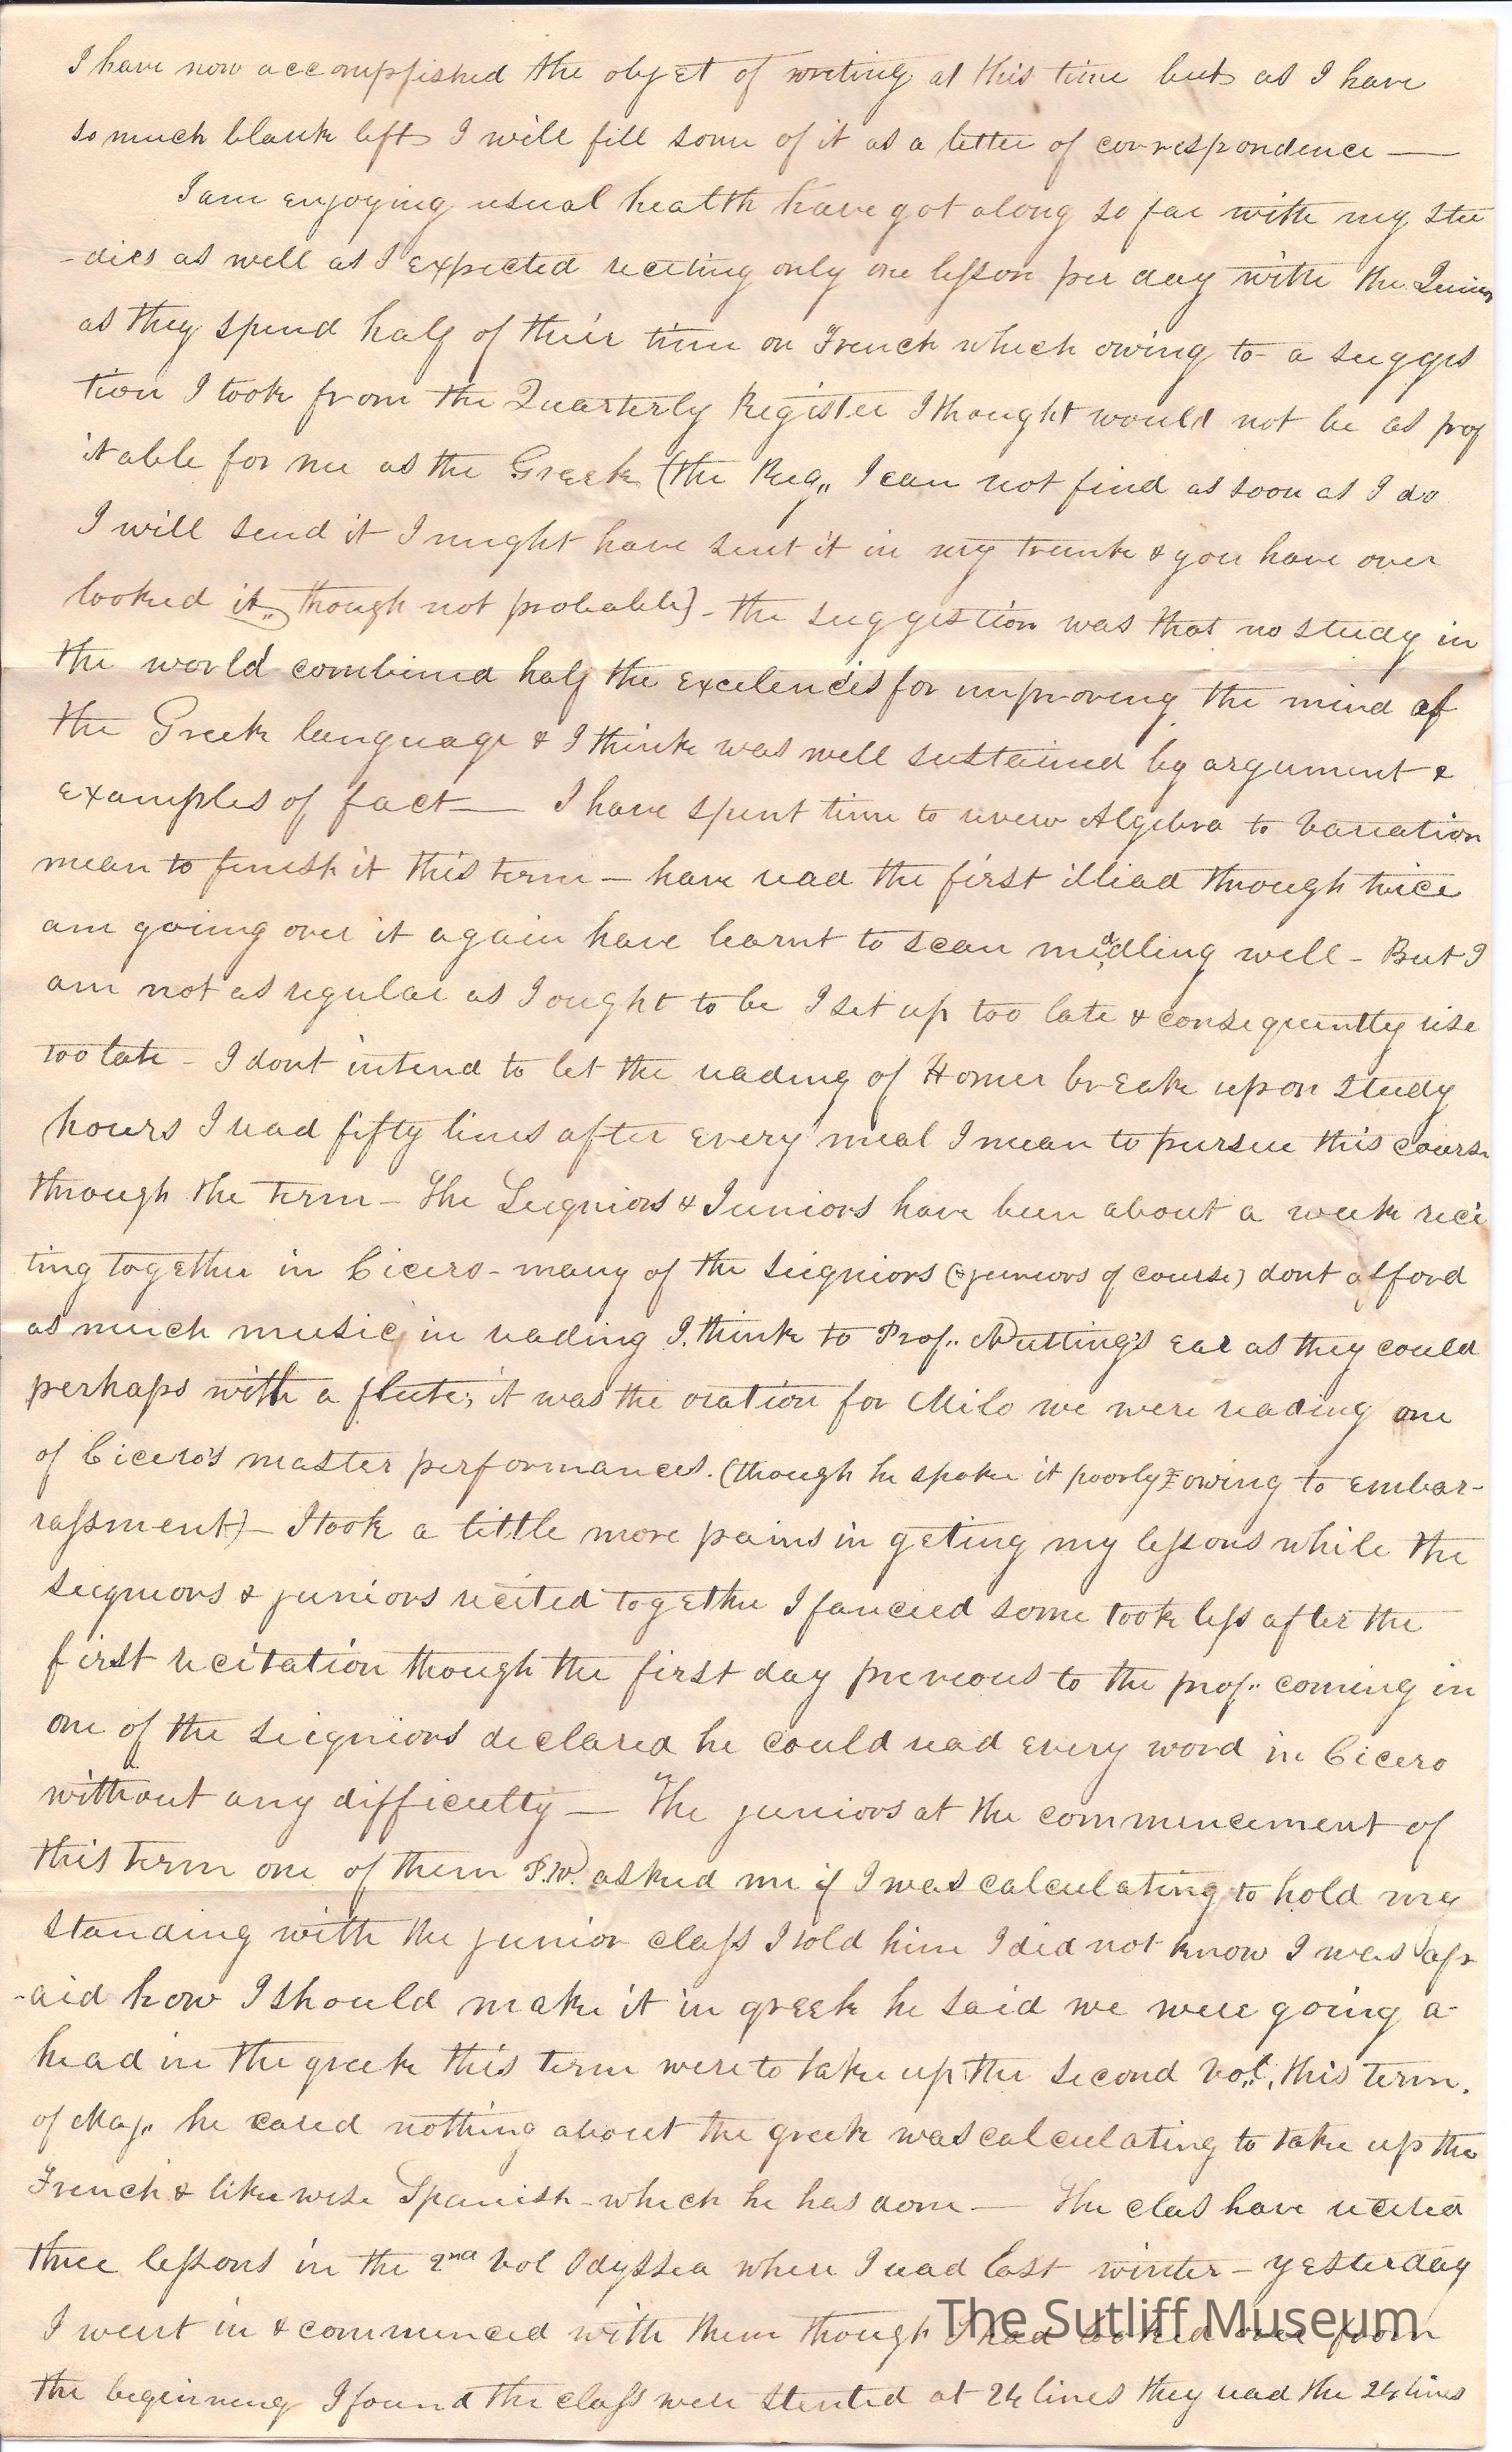 I have now accompfished the objet of writing at this time but as I have
so much blank left I will fill some of it as a letter of correspondence —
I am enjoying usual health have got along so far with my stu
-dies as well as I expected reciting only one lesson per day with the Juniors
as they spend half of their time on French which owing to a sugges
tion I took from the Quarterly Register I thought would not be as prof
itable for me as the Greek (the Reg,, I can not find as soon as I do
I will send it I might have sent it in my trunk & you have over
looked it, though not probable) - the suggestion was that no study in
the world combined half the excelencies for improving the mind of
the Greek language & I think was well sustained by argument &
examples of fact — I have spent time to revew Algebra to Variation
mean to finish it this term — have read the first illiad through twice
am going over it again have learnt to scan middling well - But I
am not as regular as I ought to be I set up too late & consequently rise
too late - I dont intend to let the reading of Homer break upon study
hours I read fifty lines after every meal I mean to pursue this course
through the term - The Seigniors & Juniors have been about a week reci
ting together in Cicero - many of the seigniors (& juniors of course) dont afford
as much music in reading I think to Prof.. Nutting's ear as they could
perhaps with a flute; it was the oration for Milo we were reading one
of Cicero's master performances. (though he spoke it poorly owing to embar-
rassment) - I took a little more pains in geting my lessons while the
seigniors & juniors recited together I fancied some took less after the
first recitation though the first day preveous to the prof.. coming in
one of the seigniors declared he could read every word in Cicero
without any difficulty — The juniors at the commencement of
this term one of them P.W. asked me if I was calculating to hold my
standing with the junior class I told him I did not know I was afr
-aid how I should make it in greek he said we were going a-
head in the greek this term were to take up the second vol., this term.
of Maj.. he cared nothing about the greek was calculating to take up the
French & likewise Spanish - which he has done — The clas have recited
three lessons in the 2nd vol Odyssea where I read last winter - yesterday
I went in & commenced with them though I had looked over from
The Sutliff Museum
the beginning I found the class were stented at 24 lines they read the 24 lines